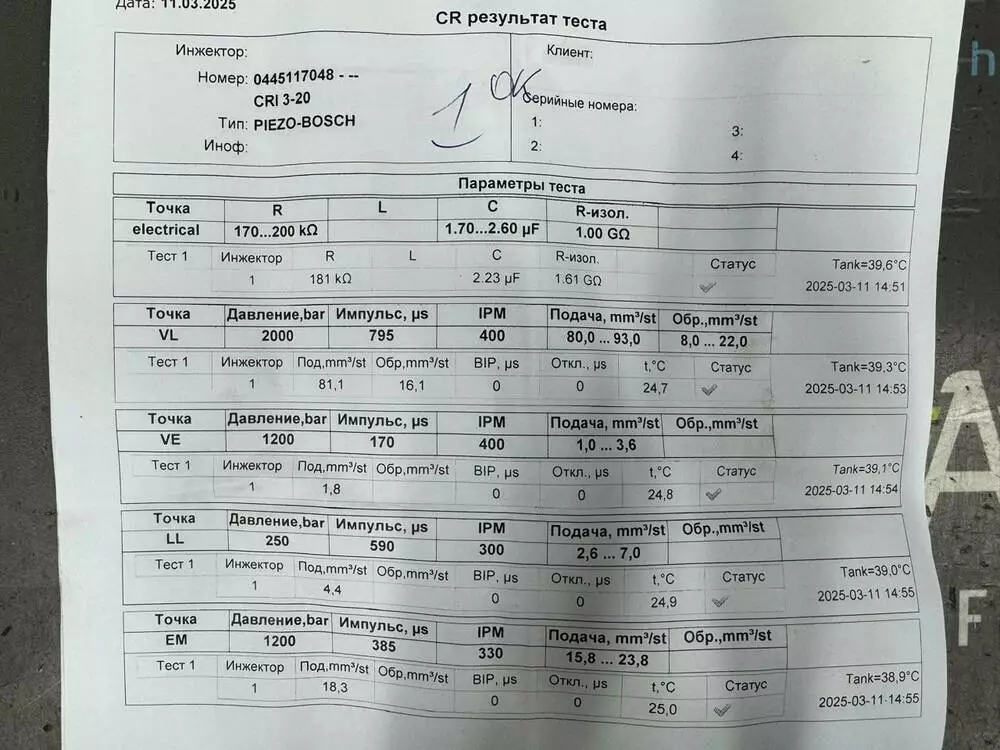 Дата: 11.03.2025
CR результат теста
Инжектор:
Номер: 0445117048 - --
CRI 3-20
Тип: PIEZO-BOSCH
Иноф:
1 OK
Клиент:
Серийные номера:
1: 3:
2: 4:
Параметры теста
Точка R L C R-изол.
electrical 170...200 kΩ 1.70...2.60 µF 1.00 GΩ
Тест 1 Инжектор R L C R-изол. Статус Tank=39,6°C
1 181 kΩ 2.23 µF 1.61 GΩ 2025-03-11 14:51
Точка Давление,bar Импульс, µs IPM Подача, mm³/st Обр.,mm³/st
VL 2000 795 400 80,0 ... 93,0 8,0 ... 22,0
Тест 1 Инжектор Под,mm³/st Обр,mm³/st BIP, µs Откл., µs t,°C Статус Tank=39,3°C
1 81,1 16,1 0 0 24,7 2025-03-11 14:53
Точка Давление,bar Импульс, µs IPM Подача, mm³/st Обр.,mm³/st
VE 1200 170 400 1,0 ... 3,6
Тест 1 Инжектор Под,mm³/st Обр,mm³/st BIP, µs Откл., µs t,°C Статус Tank=39,1°C
1 1,8 0 0 24,8 2025-03-11 14:54
Точка Давление,bar Импульс, µs IPM Подача, mm³/st Обр.,mm³/st
LL 250 590 300 2,6 ... 7,0
Тест 1 Инжектор Под,mm³/st Обр,mm³/st BIP, µs Откл., µs t,°C Статус Tank=39,0°C
1 4,4 0 0 24,9 2025-03-11 14:55
Точка Давление,bar Импульс, µs IPM Подача, mm³/st Обр.,mm³/st
EM 1200 385 330 15,8 ... 23,8
Тест 1 Инжектор Под,mm³/st Обр,mm³/st BIP, µs Откл., µs t,°C Статус Tank=38,9°C
1 18,3 0 0 25,0 2025-03-11 14:55